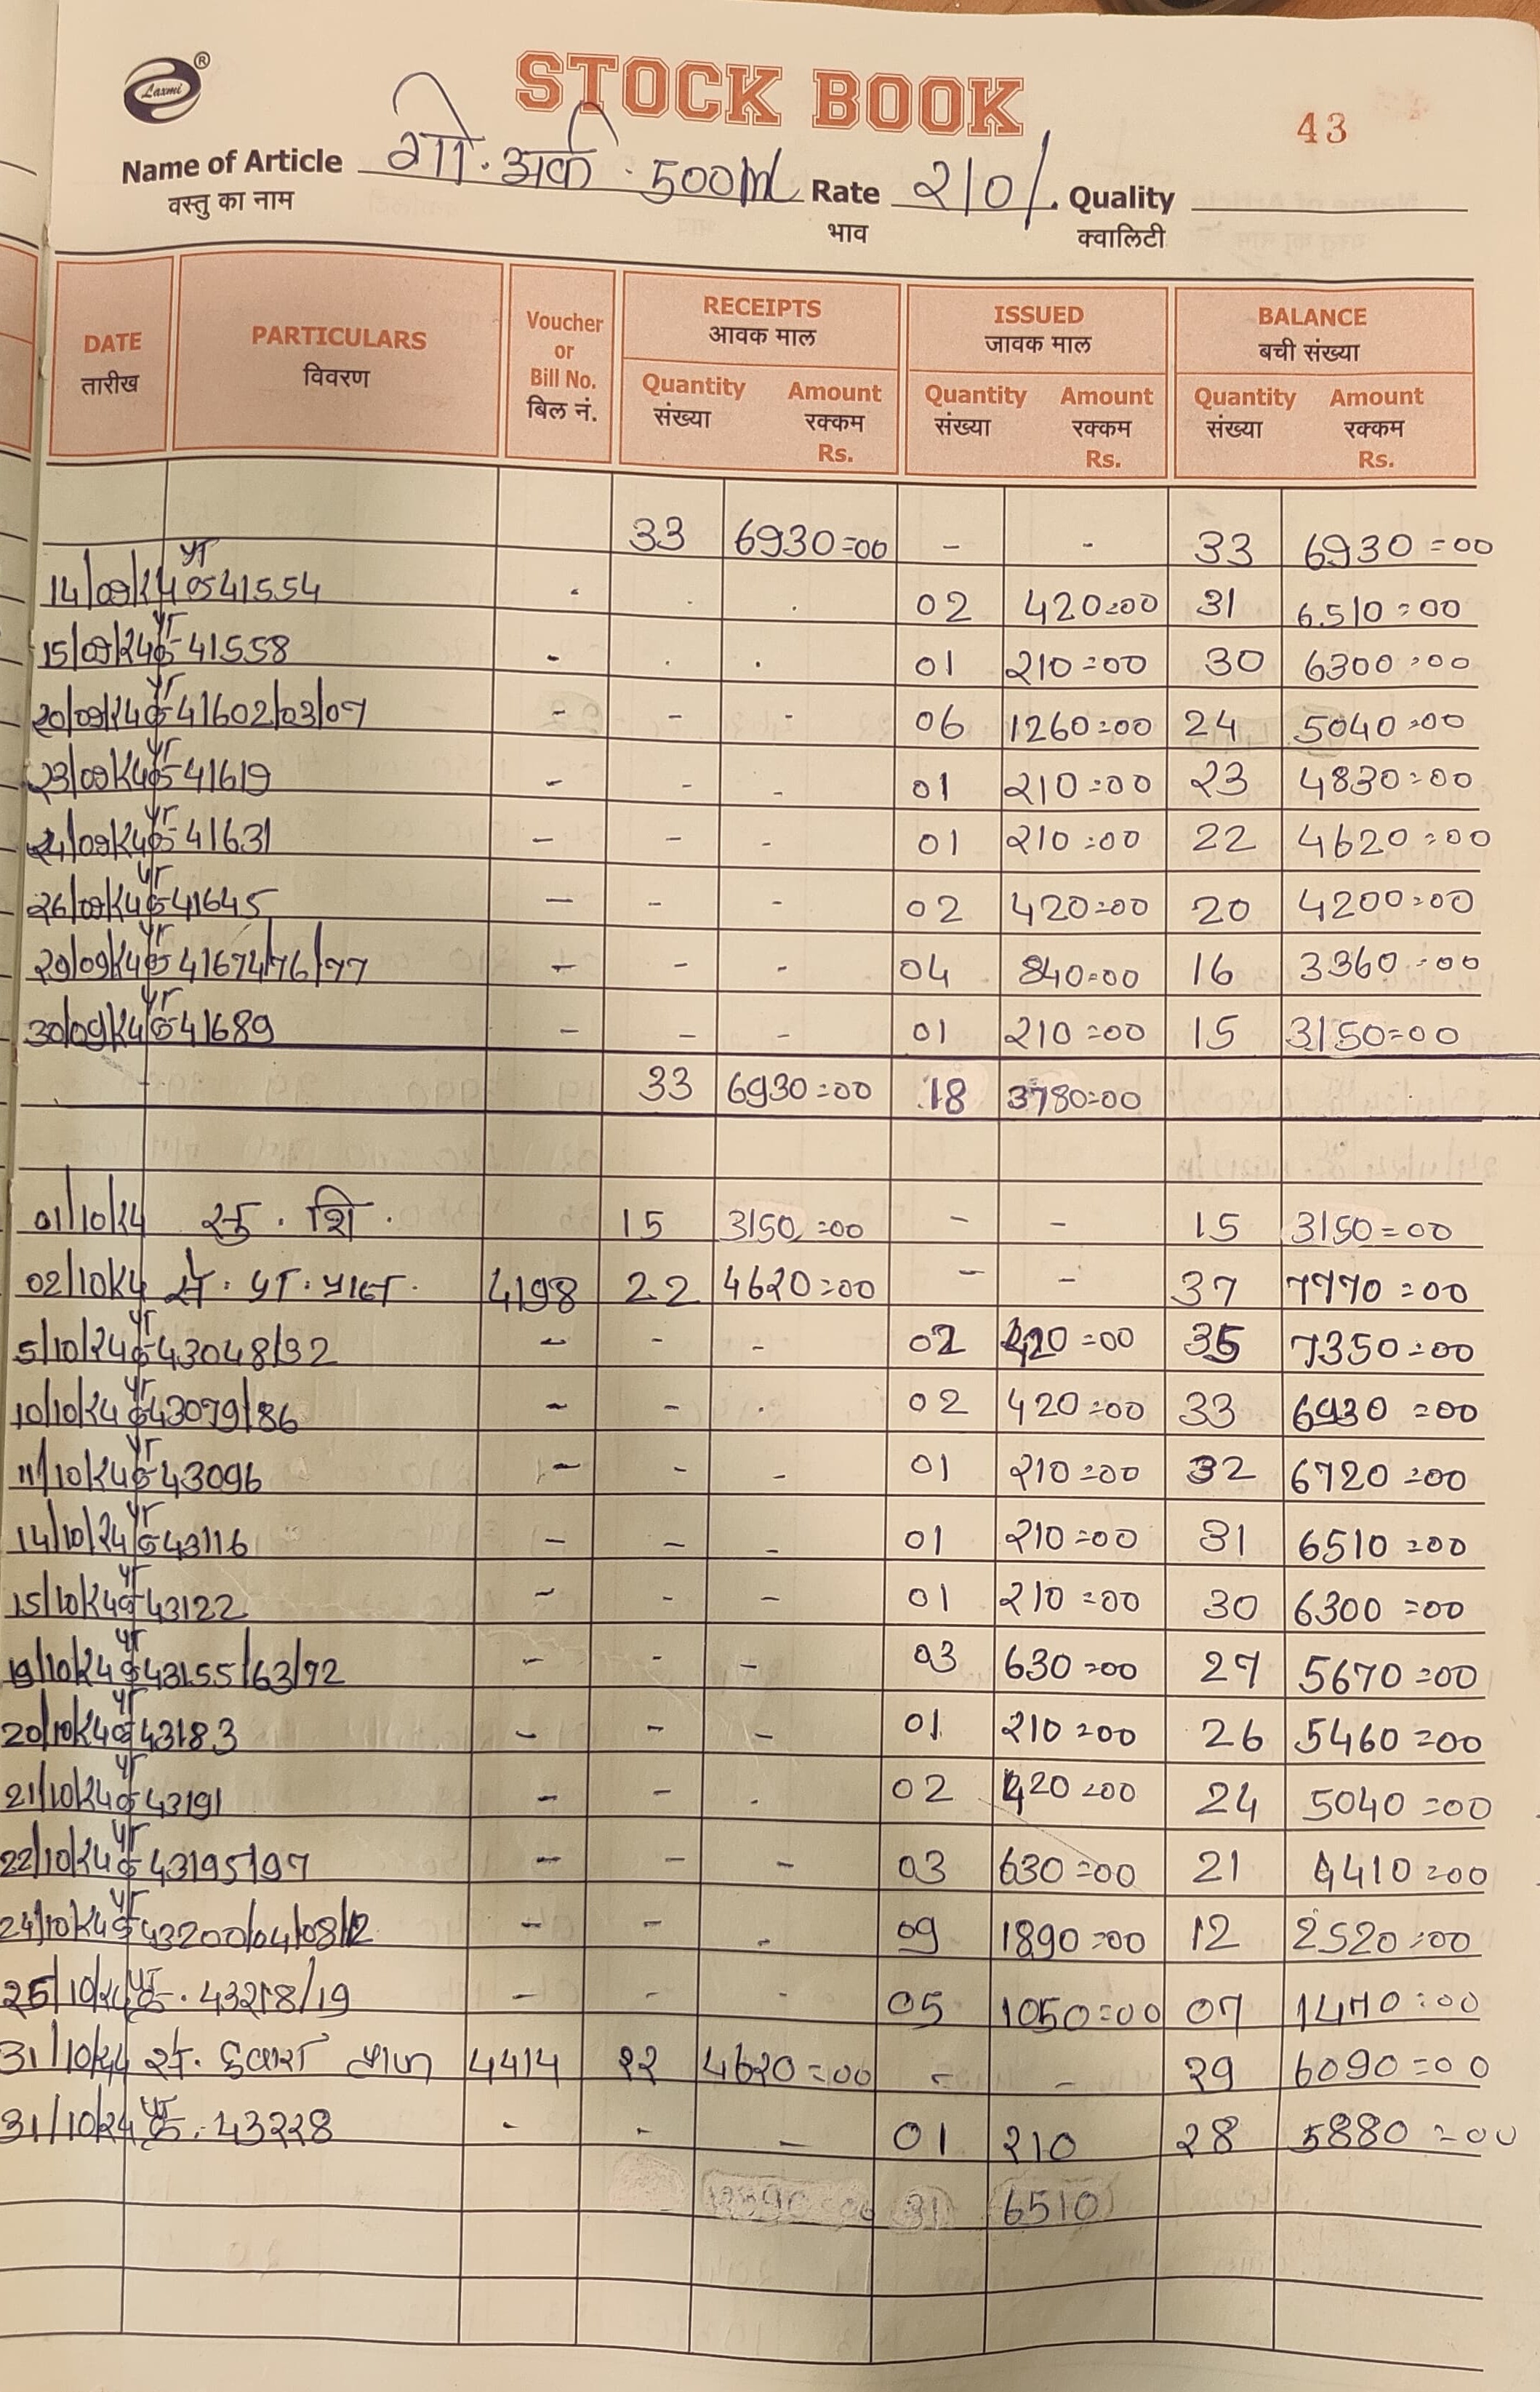 Laxmi ®
STOCK BOOK
43
Name of Article गो. अर्क. 500ml Rate २10/. Quality
वस्तु का नाम भाव क्वालिटी
DATE तारीख PARTICULARS विवरण Voucher or Bill No. बिल नं. RECEIPTS आवक माल ISSUED जावक माल BALANCE बची संख्या
Quantity संख्या Amount रक्कम Rs. Quantity संख्या Amount रक्कम Rs. Quantity संख्या Amount रक्कम Rs.
33 6930=00 - - 33 6930=00
14/09/24 पा क्र 41554 . . . 02 420=00 31 6510=00
15/09/24 पा क्र 41558 - . . 01 210=00 30 6300=00
20/09/24 पा क्र 41602/03/07 - - - 06 1260=00 24 5040=00
23/09/24 पा क्र 41619 - - - 01 210=00 23 4830=00
24/09/24 पा क्र 41631 - - - 01 210=00 22 4620=00
26/09/24 पा क्र 41645 - - - 02 420=00 20 4200=00
29/09/24 पा क्र 41674/76/77 - - - 04 840=00 16 3360=00
30/09/24 पा क्र 41689 - - - 01 210=00 15 3150=00
33 6930=00 18 3780=00
01/10/24 सु. शि. 15 3150=00 - - 15 3150=00
02/10/24 4198 22 4620=00 - - 37 7770=00
5/10/24 पा क्र 43048/32 - - - 02 420=00 35 7350=00
10/10/24 पा क्र 43079/86 - - . 02 420=00 33 6930=00
11/10/24 पा क्र 43096 - - - 01 210=00 32 6720=00
14/10/24 पा क्र 43116 - - - 01 210=00 31 6510=00
15/10/24 पा क्र 43122 - - - 01 210=00 30 6300=00
19/10/24 पा क्र 43155/63/72 - - - 03 630=00 27 5670=00
20/10/24 पा क्र 43183 - - - 01 210=00 26 5460=00
21/10/24 पा क्र 43191 - - . 02 420=00 24 5040=00
22/10/24 पा क्र 43195/97 - - - 03 630=00 21 4410=00
24/10/24 पा क्र 43200/04/08/12 - - - 09 1890=00 12 2520=00
25/10/24 पा क्र. 43218/19 - - - 05 1050=00 07 1470=00
31/10/24 4414 २२ 4620=00 - - २9 6090=00
31/10/24 पा क्र. 43२२8 - - - 01 २10 २8 5880=00
31 6510